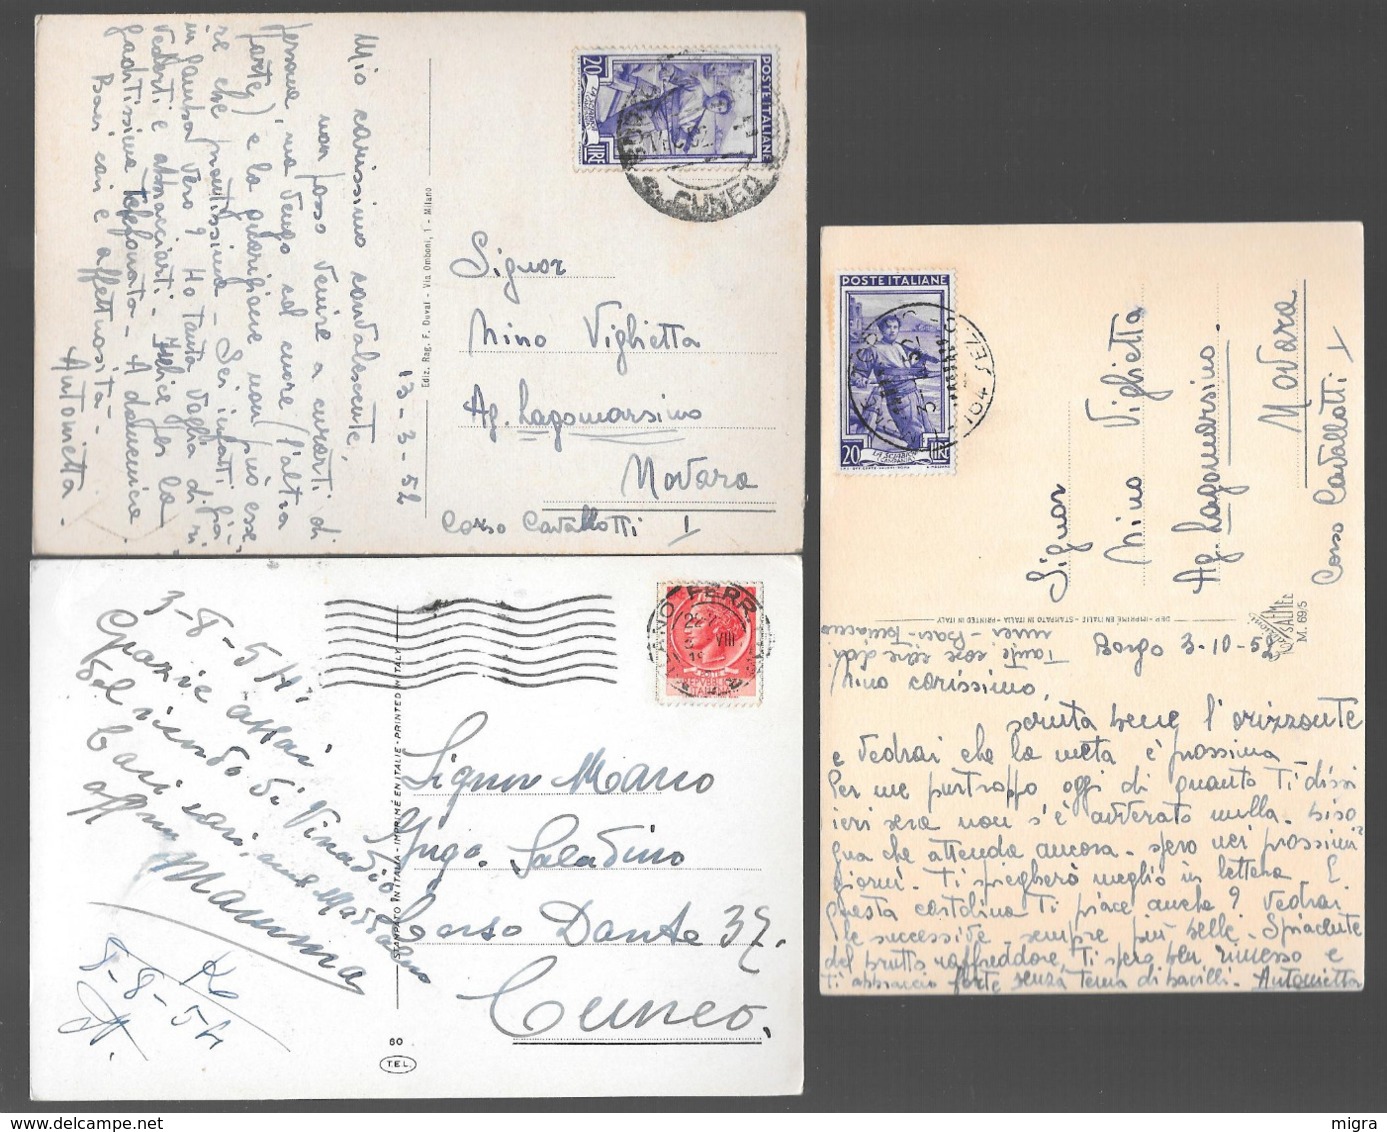 Mio carissimo convalescente,
non posso venire a curarti di
persona, ma vengo col cuore (l'altra
parte) e la guarigione non può esse
re che prontissima - Sei infatti già
in gamba vero? Ho tanta voglia di ri
vederti e abbracciarti - Felice per la
graditissima telefonata - A domenica
Baci cari e affettuosità -
Antonietta
13-3-52
Ediz. Rag. F. Duval - Via Omboni, 1 - Milano
POSTE ITALIANE
20
LIRE
CUNEO
Signor
Nino Vighetta
Ag. Lagomarsino
Novara
Corso Cavallotti 1
3-8-54.
Grazie assai
del ricordo di Vinadio
Cari baci
Mamma
8-8-54
STAMPATO IN ITALIA - IMPRIMÉ EN ITALIE - PRINTED IN ITALY
60
T.E.L.
FERR
VIII
Signor Marco
Ing. Saladino
Corso Dante 37.
Cuneo.
POSTE ITALIANE
20
LIRE
Signor
Nino Vighetta
Ag. Lagomarsino
Novara
Corso Cavallotti 1
DEP. - IMPRIMÉ EN ITALIE - STAMPATO IN ITALIA - PRINTED IN ITALY
SALMEE
M. 69/5
Tante cose care dai
miei - Baci
Borgo 3-10-52
Nino carissimo,
scruta bene l'orizzonte
e vedrai che la meta è prossima
Per me purtroppo oggi di quanto ti dissi
ieri sera non s'è avverato nulla. Biso
gna che attenda ancora - spero nei prossimi
giorni. Ti spiegherò meglio in lettera. E
questa cartolina ti piace anche? Vedrai
le successive - sempre più belle - Spiacente
del brutto raffreddore, ti spero ben rimesso e
ti abbraccio forte senza tema di bacilli. Antonietta
migra